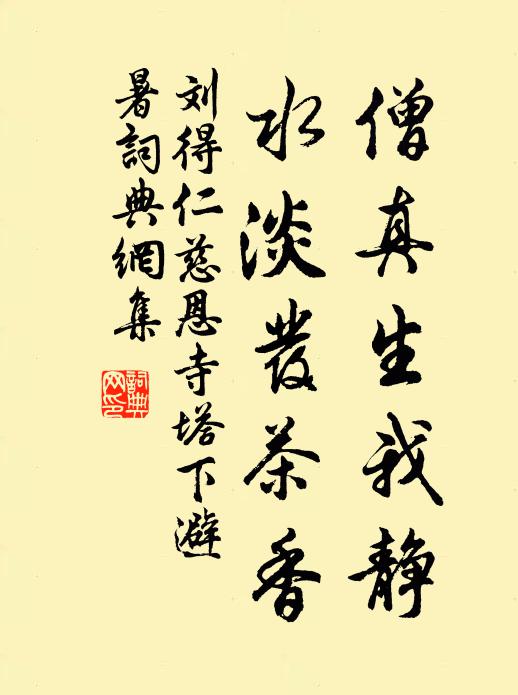 僧真生我静
水淡發茶香
刘得仁慈恩寺塔下避
暑詞典網集
詞典
网印